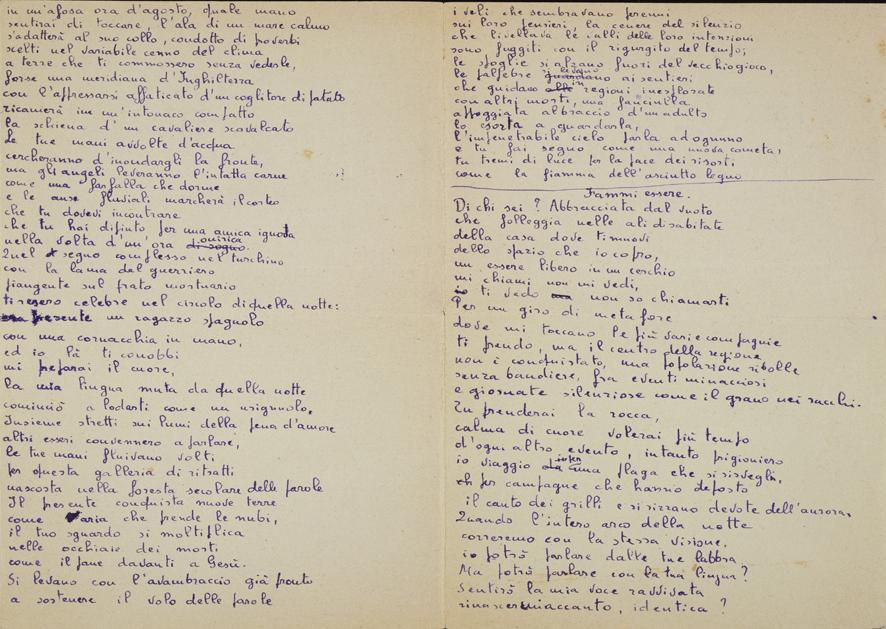 in un'afosa ora d'agosto, quale mano
sentirai di toccare, l'ala di un mare calmo
s'adatterà al suo collo, condotto di proverbi
scelti nel variabile cenno del clima
a terre che ti commossero senza vederle,
forse una meridiana d'Inghilterra
con l'appressarsi affaticato d'un coglitore di patate
ricamerà in un'intonaco compatto
la schiena d'un cavaliere scavalcato
le tue mani avvolte d'acqua
cercheranno d'inondargli la fronte,
ma gli angeli leveranno l'intatta carne
come una farfalla che dorme
e le anse fluviali marcherà il corteo
che tu dovevi incontrare
che tu hai dipinto per una amica ignota
nella volta d'un'ora di sogno. onirica
Quel segno complesso nel turchino
con la lama del guerriero
piangente sul prato mortuario
ti resero celebre nel circolo di quella notte:
presente un ragazzo spagnolo
con una cornacchia in mano,
ed io là ti conobbi
mi preparai il cuore,
la mia lingua muta da quella notte
cominciò a lodarti come un usignuolo,
Insieme stretti sui lumi della pena d'amore
altri esseri convennero a parlare,
le tue mani fluivano volti
per questa galleria di ritratti
nascosta nella foresta secolare delle parole
Il presente conquista nuove terre
come l'aria che prende le nubi,
il tuo sguardo si moltiplica
nelle occhiaie dei morti
come il pane davanti a Gesù.
Si levano con l'avambraccio già pronto
a sostenere il volo delle parole
i veli che sembravano perenni
sui loro pensieri, la cenere del silenzio
che livellava le valli delle loro intenzioni
sono fuggiti con il rigurgito del tempo;
le spoglie si alzano fuori del vecchio gioco,
le palpebre levano ai sentieri
che guidano in regioni inesplorate
con altri morti, una fanciulla
appoggiata al braccio d'un adulto
lo esorta a guardarla,
l'impenetrabile cielo parla ad ognuno
e tu fai segno come una nuova cometa,
tu tremi di luce per la pace dei risorti
come la fiamma dell'asciutto legno
Fammi essere.
Di chi sei? Abbracciata dal vuoto
che folleggia nelle ali disabitate
della casa dove ti muovi
dello spazio che io copro,
un essere libero in un cerchio
mi chiami non mi vedi,
io ti vedo non so chiamarti
Per un giro di metafore
dove mi toccano le più varie compagnie
ti prendo, ma il centro della regione
non è conquistato, una popolazione ribolle
senza bandiere, fra eventi minacciosi
e giornate silenziose come il grano nei sacchi.
Tu prenderai la rocca,
calma di cuore volerai più tempo
d'ogni altro evento, intanto prigioniero
io viaggio in per una plaga che si risvegli,
per campagne che hanno deposto
il canto dei grilli e si rizzano devote dell'aurora.
Quando l'intero arco della notte
correremo con la stessa visione,
io potrò parlare dalle tue labbra
Ma potrò parlare con la tua lingua?
Sentirò la mia voce ravvisata
rinascermi accanto, identica?